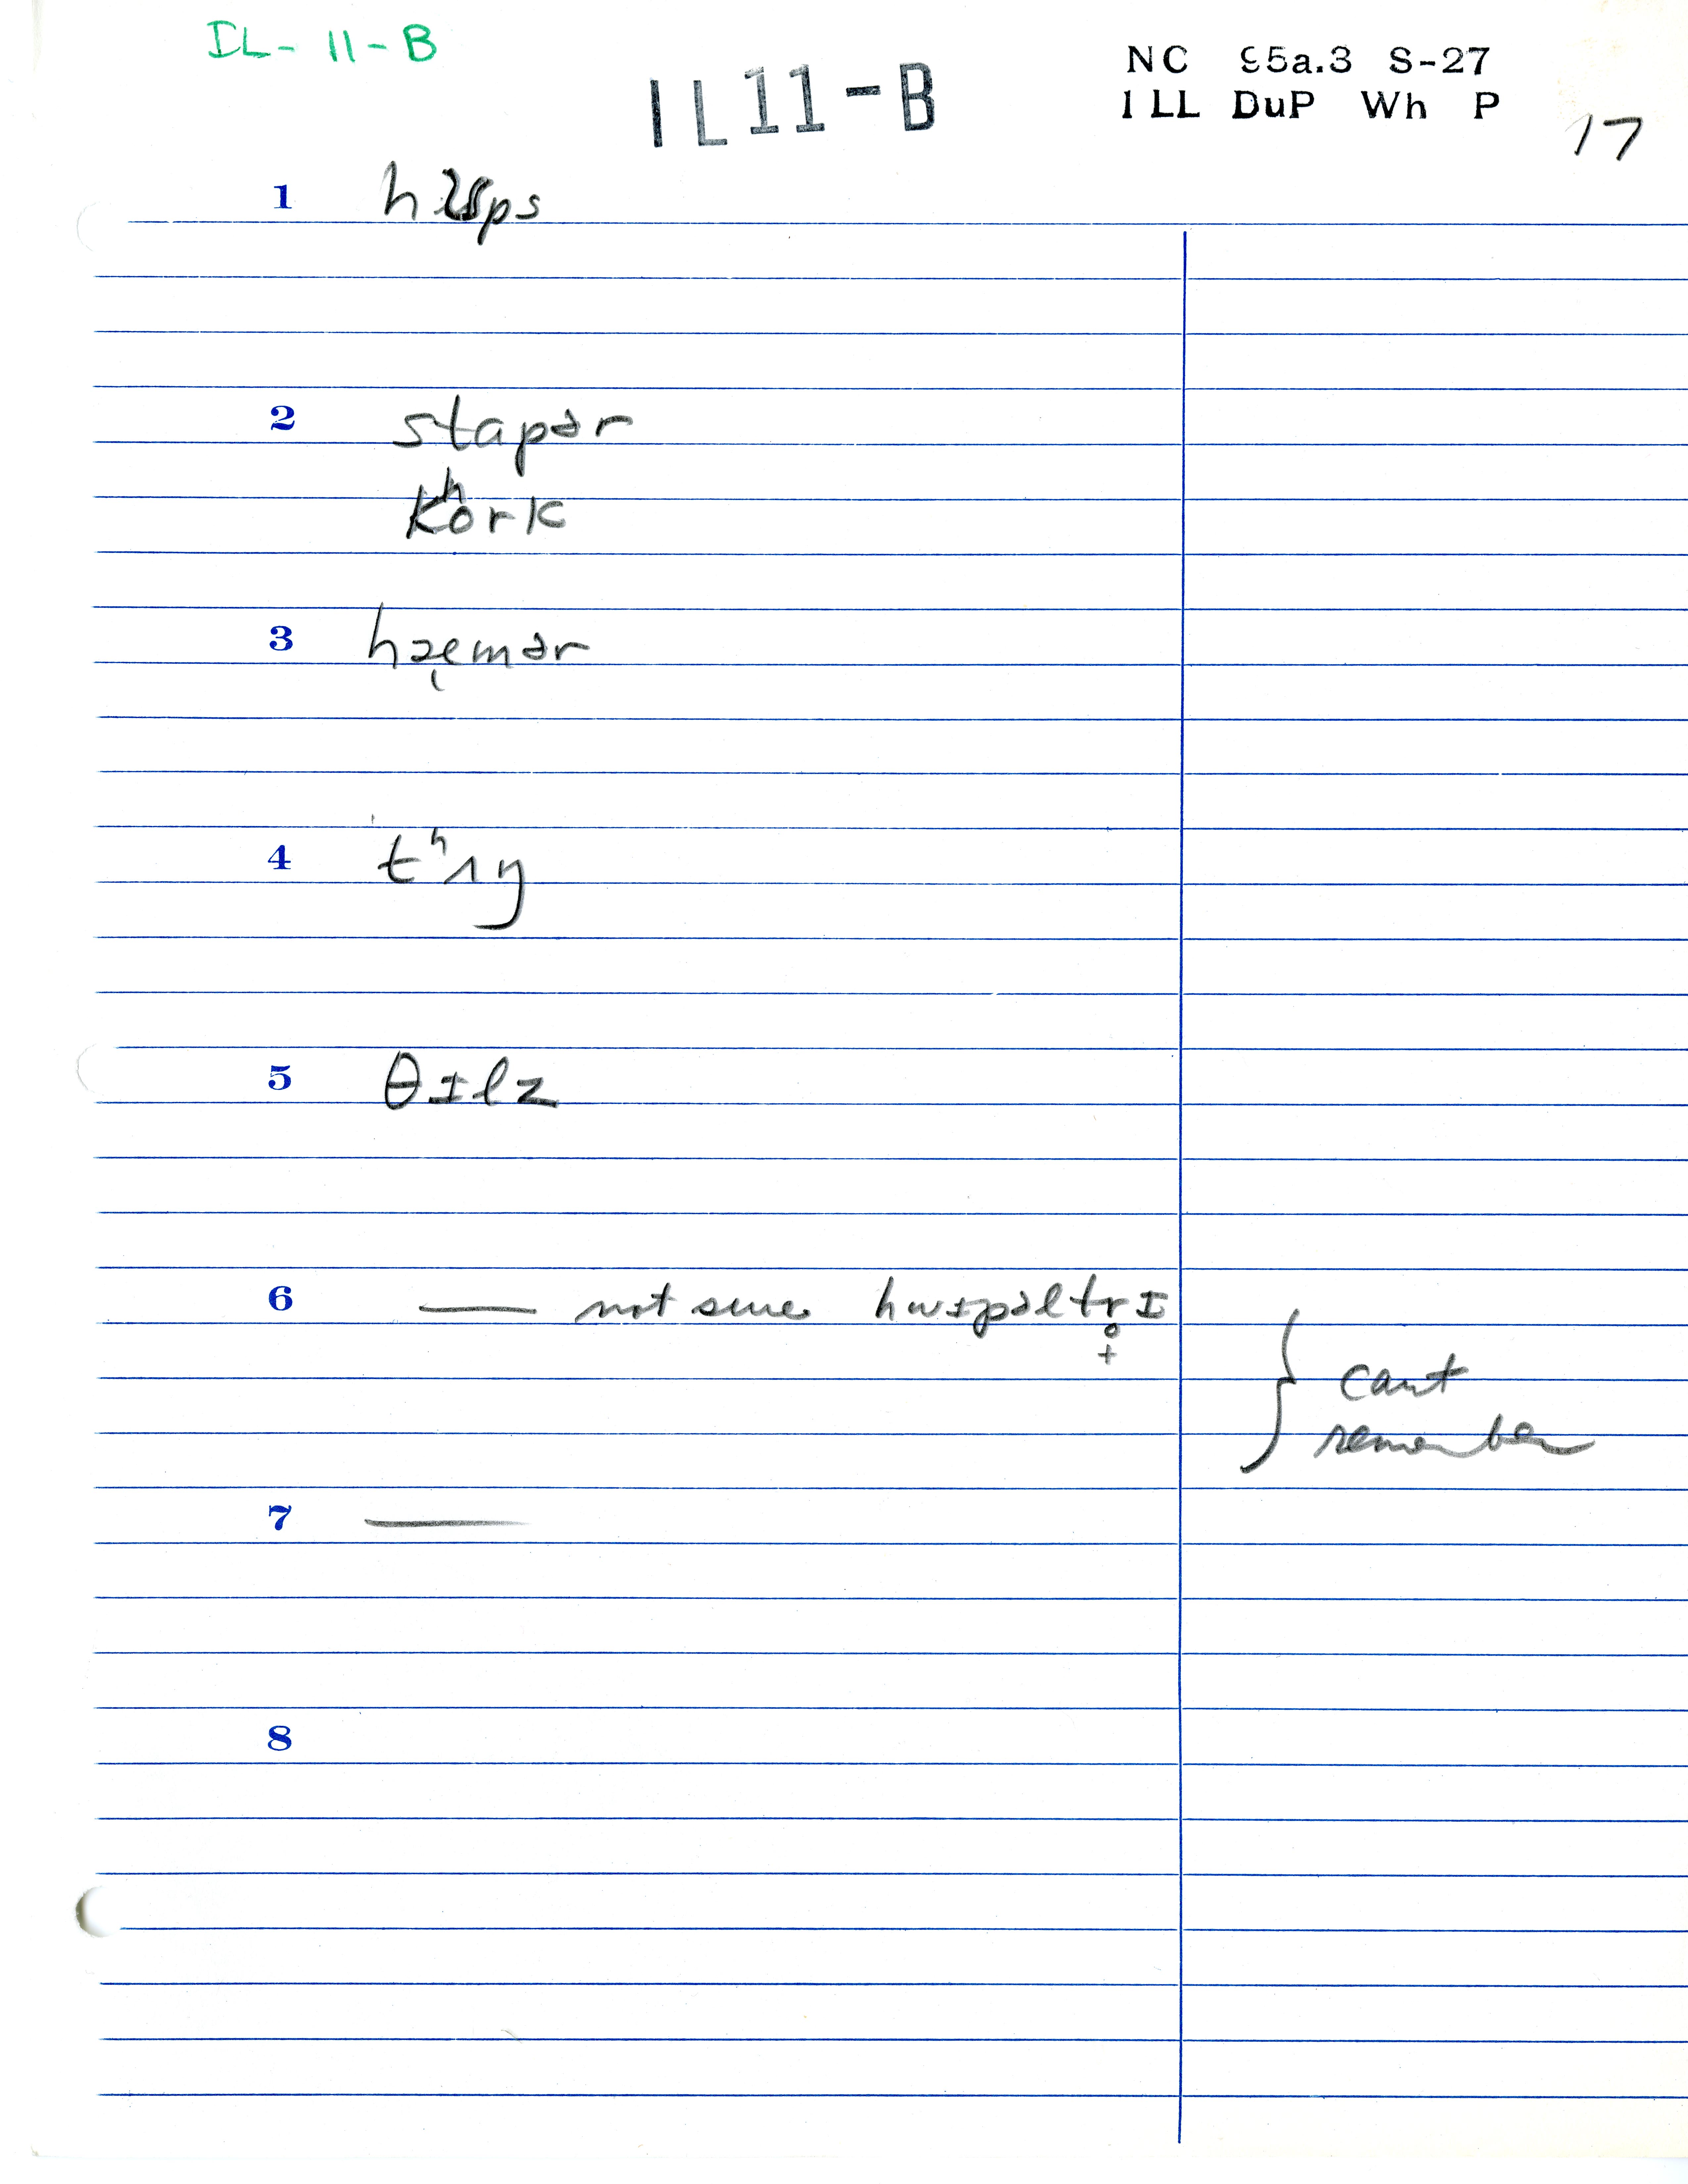 IL-11-B
IL11-B
NC 95a.3 S-27
ILL DuP Wh P
17
1
2 stapər
kʰork
3 hæ̨mər
4 tʰʌŋ
5 θɪlz
6 — not sure hwɪpəltr̥ɪ
+
} cant
remember
7 —
8